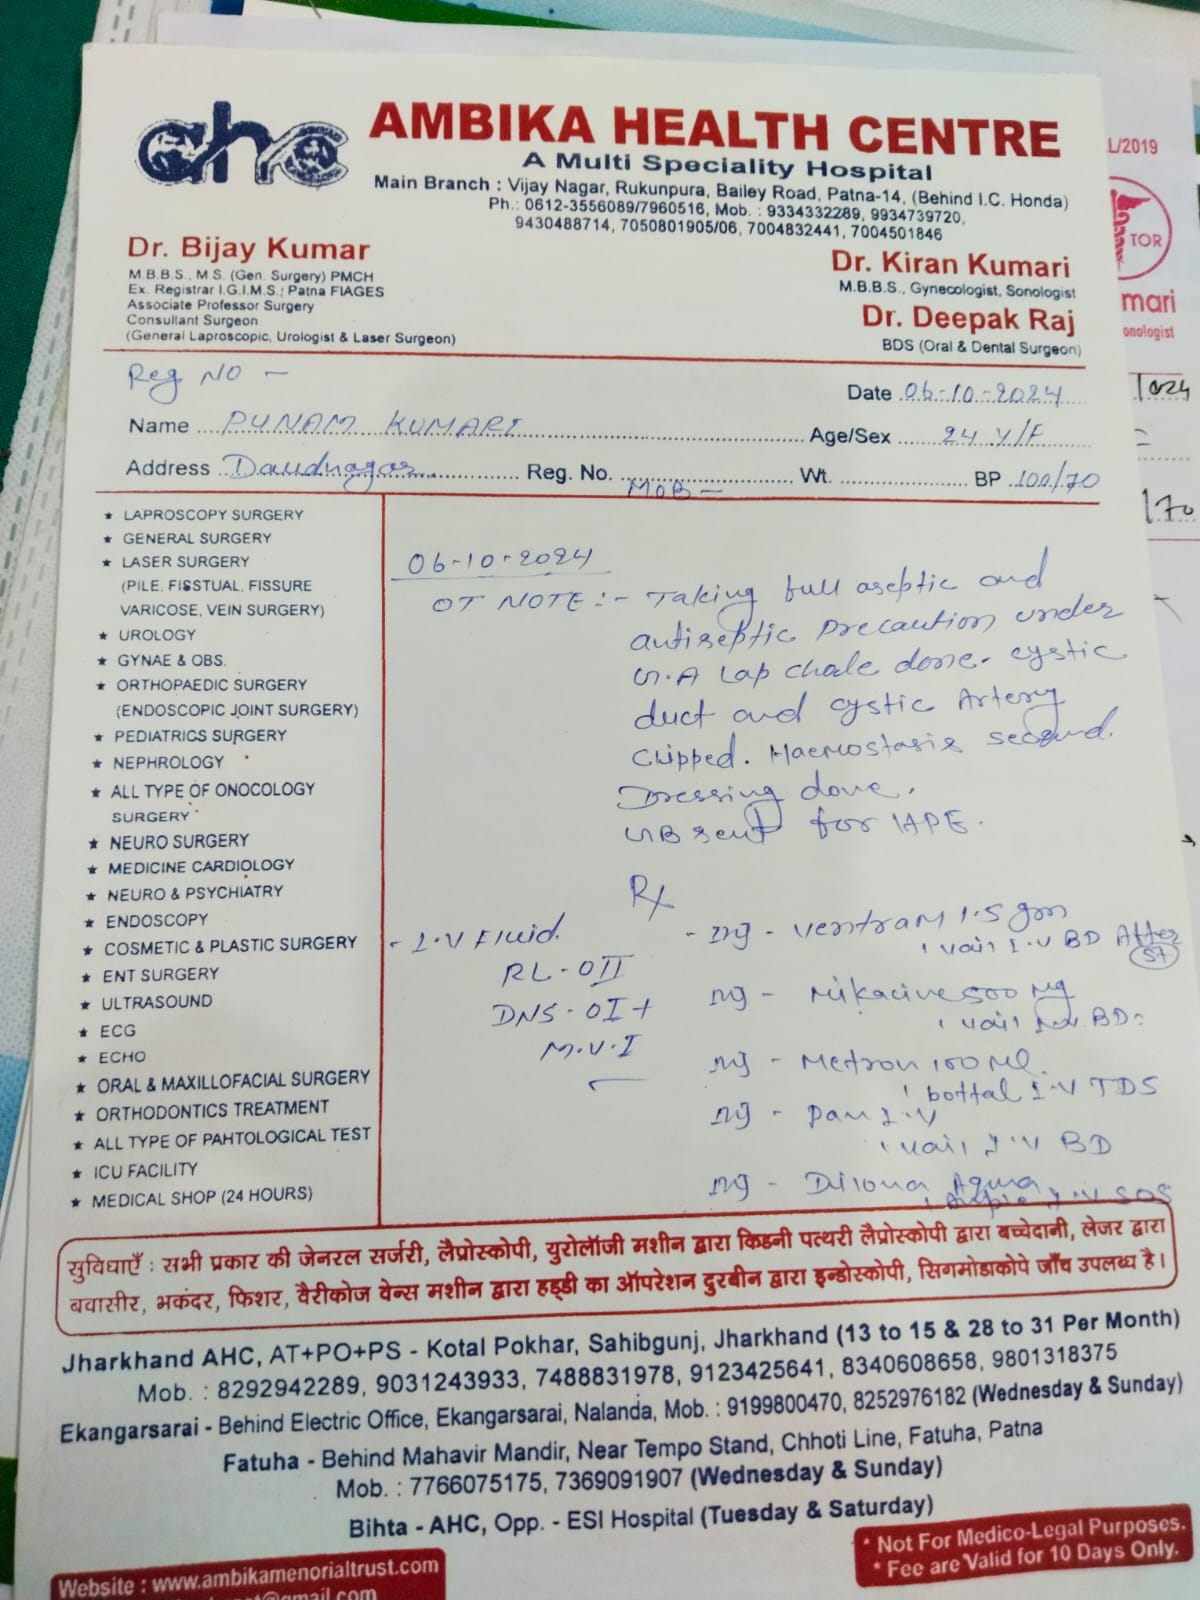 ahc
AMBIKA HEALTH CENTRE
A Multi Speciality Hospital
Main Branch : Vijay Nagar, Rukunpura, Bailey Road, Patna-14, (Behind I.C. Honda)
Ph.: 0612-3556089/7960516, Mob. : 9334332289, 9934739720,
9430488714, 7050801905/06, 7004832441, 7004501846
L/2019
TOR
mari
onologist
Dr. Bijay Kumar
M.B.B.S., M.S. (Gen. Surgery) PMCH
Ex. Registrar I.G.I.M.S.; Patna FIAGES
Associate Professor Surgery
Consultant Surgeon
(General Laproscopic, Urologist & Laser Surgeon)
Dr. Kiran Kumari
M.B.B.S., Gynecologist, Sonologist
Dr. Deepak Raj
BDS (Oral & Dental Surgeon)
Reg NO -
Date 06-10-2024
Name PUNAM KUMARI Age/Sex 24 Y/F
Address Daudnagar Reg. No. Wt. BP 100/70
MOB -
★ LAPROSCOPY SURGERY
★ GENERAL SURGERY
★ LASER SURGERY
(PILE, FISSTUAL, FISSURE
VARICOSE, VEIN SURGERY)
★ UROLOGY
★ GYNAE & OBS.
★ ORTHOPAEDIC SURGERY
(ENDOSCOPIC JOINT SURGERY)
★ PEDIATRICS SURGERY
★ NEPHROLOGY
★ ALL TYPE OF ONOCOLOGY
SURGERY
★ NEURO SURGERY
★ MEDICINE CARDIOLOGY
★ NEURO & PSYCHIATRY
★ ENDOSCOPY
★ COSMETIC & PLASTIC SURGERY
★ ENT SURGERY
★ ULTRASOUND
★ ECG
★ ECHO
★ ORAL & MAXILLOFACIAL SURGERY
★ ORTHODONTICS TREATMENT
★ ALL TYPE OF PAHTOLOGICAL TEST
★ ICU FACILITY
★ MEDICAL SHOP (24 HOURS)
06-10-2024
OT NOTE :- Taking full aseptic and
antiseptic precaution under
G.A Lap chole done. cystic
duct and cystic Artery
clipped. Haemostasis
Dressing done.
GB sent for HPE.
Rx
- I.V Fluid.
RL - OII
DNS - OI +
M.V.I
- Inj - ventram 1.5 gm
1 vail I.V BD After
ST
Inj - Mikacine 500 Mg
1 vail BD
Inj - Metron 100 ML.
1 bottal I.V TDS
Inj - pan I.V
1 vail I.V BD
Inj - Aqua
1 I.V SOS
सुविधाएँ : सभी प्रकार की जेनरल सर्जरी, लैप्रोस्कोपी, युरोलॉजी मशीन द्वारा किडनी पत्थरी लैप्रोस्कोपी द्वारा बच्चेदानी, लेजर द्वारा
बवासीर, भकंदर, फिशर, वैरीकोज वेन्स मशीन द्वारा हड्डी का ऑपरेशन दुरबीन द्वारा इन्डोस्कोपी, सिगमोडाकोपे जाँच उपलब्ध है।
Jharkhand AHC, AT+PO+PS - Kotal Pokhar, Sahibgunj, Jharkhand (13 to 15 & 28 to 31 Per Month)
Mob. : 8292942289, 9031243933, 7488831978, 9123425641, 8340608658, 9801318375
Ekangarsarai - Behind Electric Office, Ekangarsarai, Nalanda, Mob. : 9199800470, 8252976182 (Wednesday & Sunday)
Fatuha - Behind Mahavir Mandir, Near Tempo Stand, Chhoti Line, Fatuha, Patna
Mob. : 7766075175, 7369091907 (Wednesday & Sunday)
Bihta - AHC, Opp. - ESI Hospital (Tuesday & Saturday)
* Not For Medico-Legal Purposes.
* Fee are Valid for 10 Days Only.
Website : www.ambikamenorialtrust.com
@gmail.com